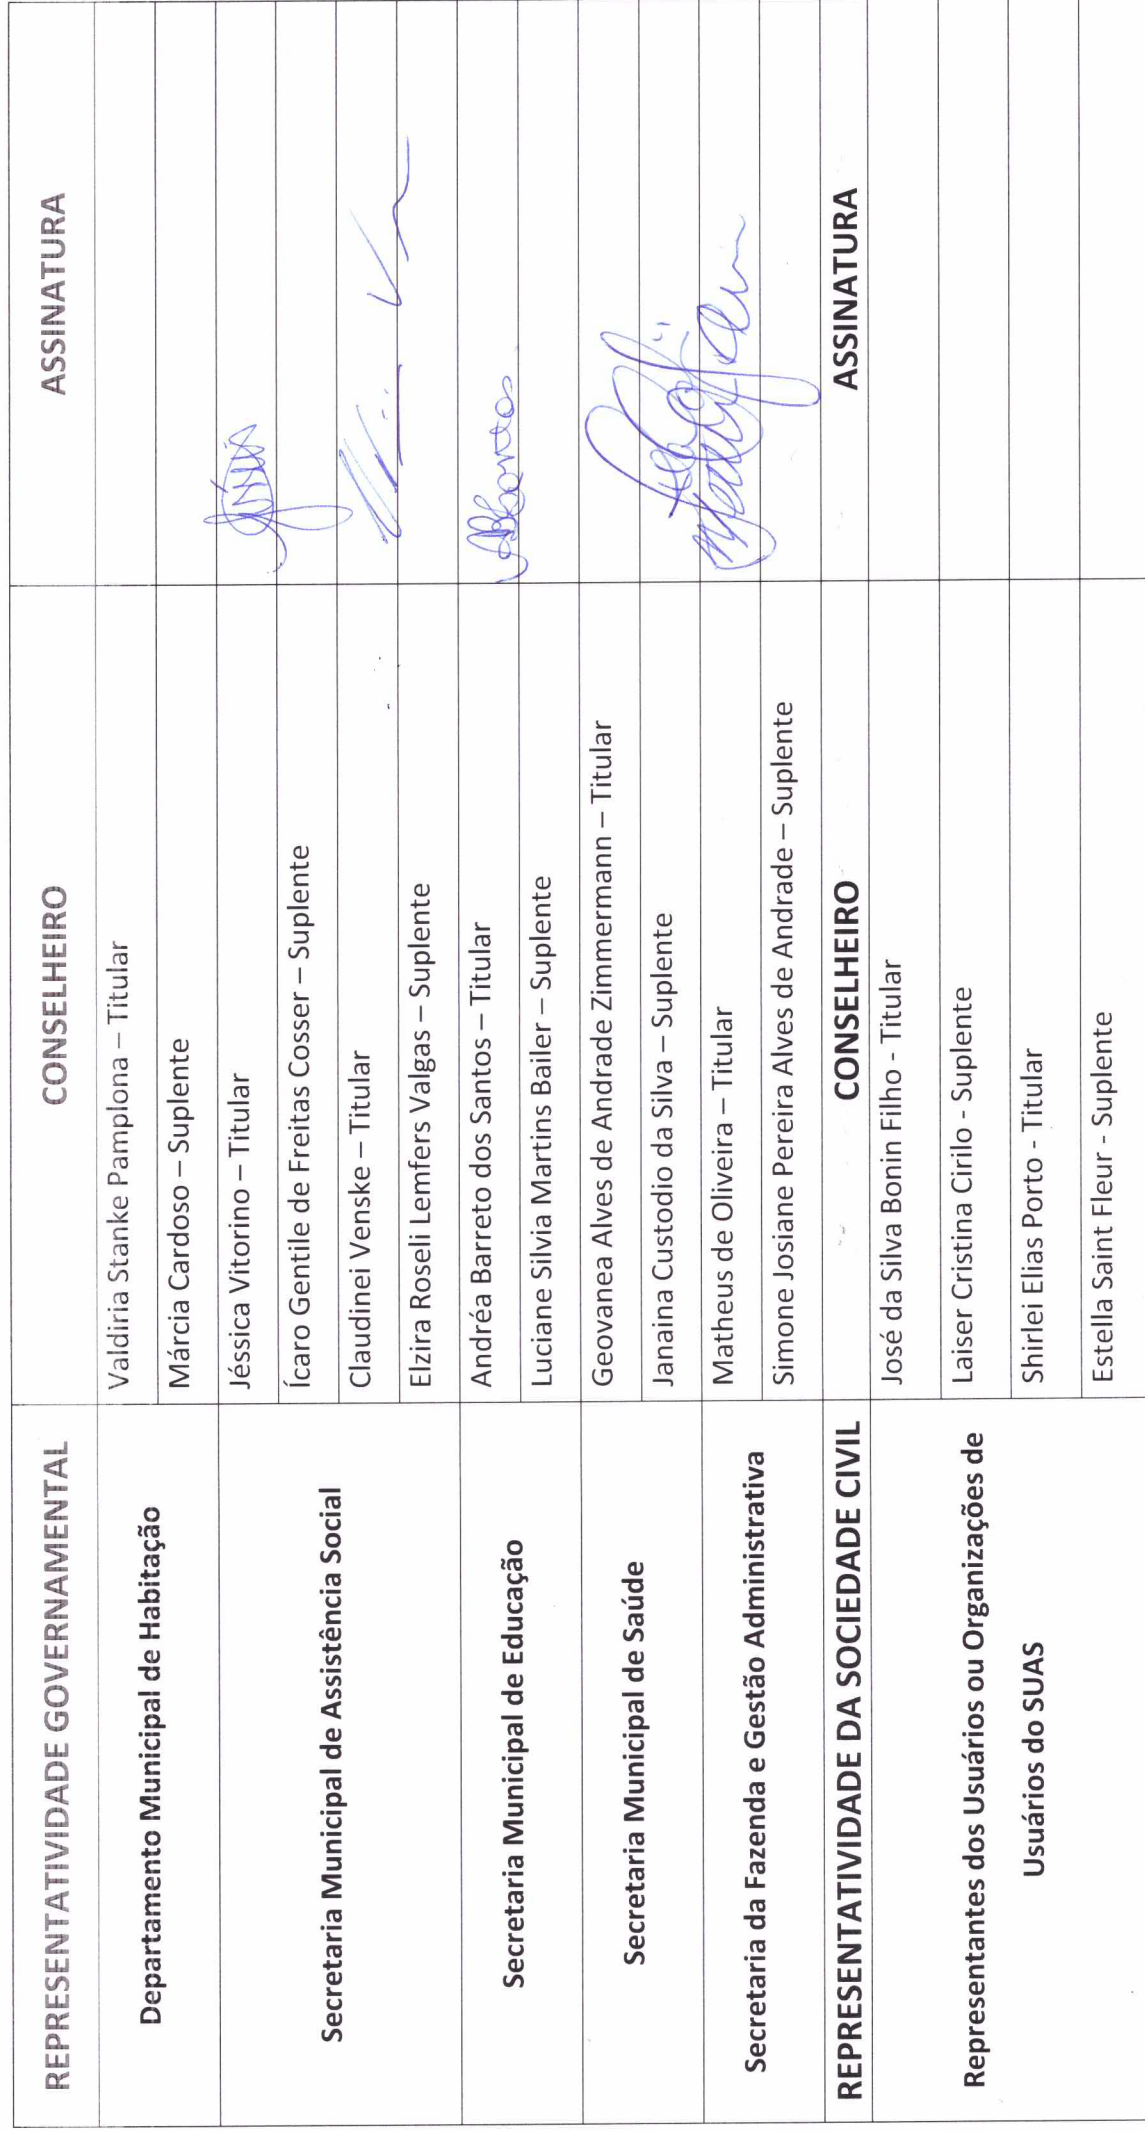 REPRESENTATIVIDADE GOVERNAMENTAL CONSELHEIRO ASSINATURA
Departamento Municipal de Habitação
Valdiria Stanke Pamplona – Titular
Márcia Cardoso – Suplente
Secretaria Municipal de Assistência Social
Jéssica Vitorino – Titular
Ícaro Gentile de Freitas Cosser – Suplente
Claudinei Venske – Titular
Elzira Roseli Lemfers Valgas – Suplente
Secretaria Municipal de Educação
Andréa Barreto dos Santos – Titular
Luciane Silvia Martins Bailer – Suplente
Secretaria Municipal de Saúde
Geovanea Alves de Andrade Zimmermann – Titular
Janaina Custodio da Silva – Suplente
Secretaria da Fazenda e Gestão Administrativa
Matheus de Oliveira – Titular
Simone Josiane Pereira Alves de Andrade – Suplente
REPRESENTATIVIDADE DA SOCIEDADE CIVIL CONSELHEIRO ASSINATURA
Representantes dos Usuários ou Organizações de
Usuários do SUAS
José da Silva Bonin Filho - Titular
Laiser Cristina Cirilo - Suplente
Shirlei Elias Porto - Titular
Estella Saint Fleur - Suplente